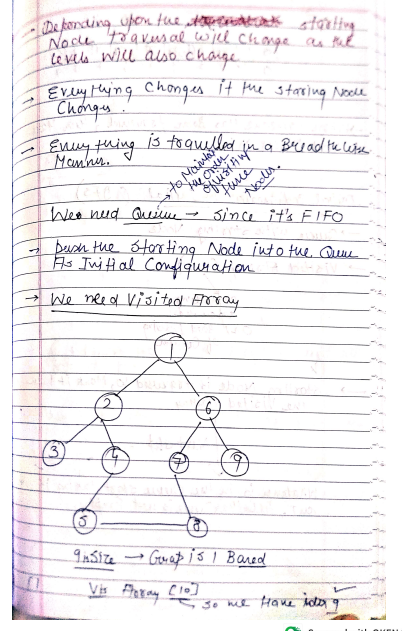 Depending upon the starting
Node traversal will change as the
levels will also change
→ Everything Changes if the staring Node
Changes.
→ Everything is travelled in a Breadth wise
Manner.
→ to Maintain
the Order
of visiting
these
Nodes.
We need Queue → Since it's FIFO
→ push the Starting Node into the Queue
As Initial Configuration
→ We need Visited Array
1
2 6
3 4 7 9
5 8
→ Grap is 1 Based
Vis Array [10]
so we Have index 9